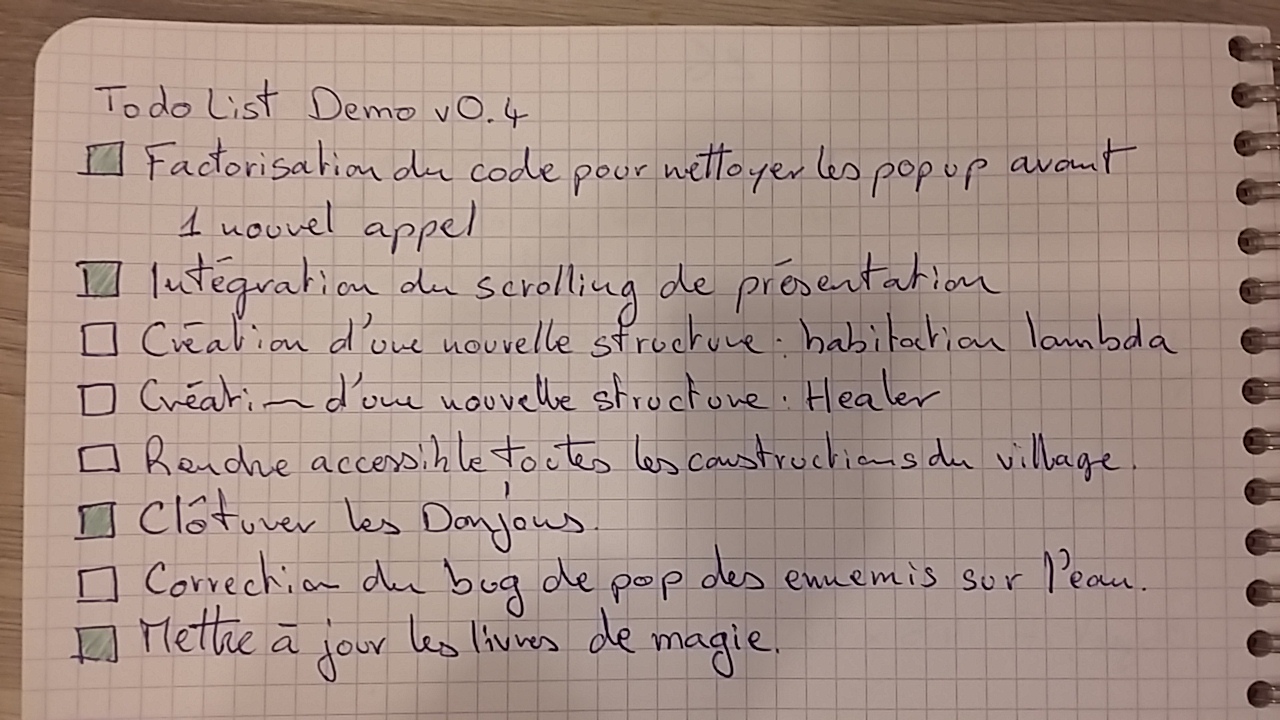 Todo list Demo v0.4
Factorisation du code pour nettoyer les popup avant
1 nouvel appel
Intégration du scrolling de présentation
Création d'une nouvelle structure : habitation lambda
Création d'une nouvelle structure : Healer
Rendre accessible toutes les constructions du village.
Clôturer les Donjons.
Correction du bug de pop des ennemis sur l'eau.
Mettre à jour les livres de magie.